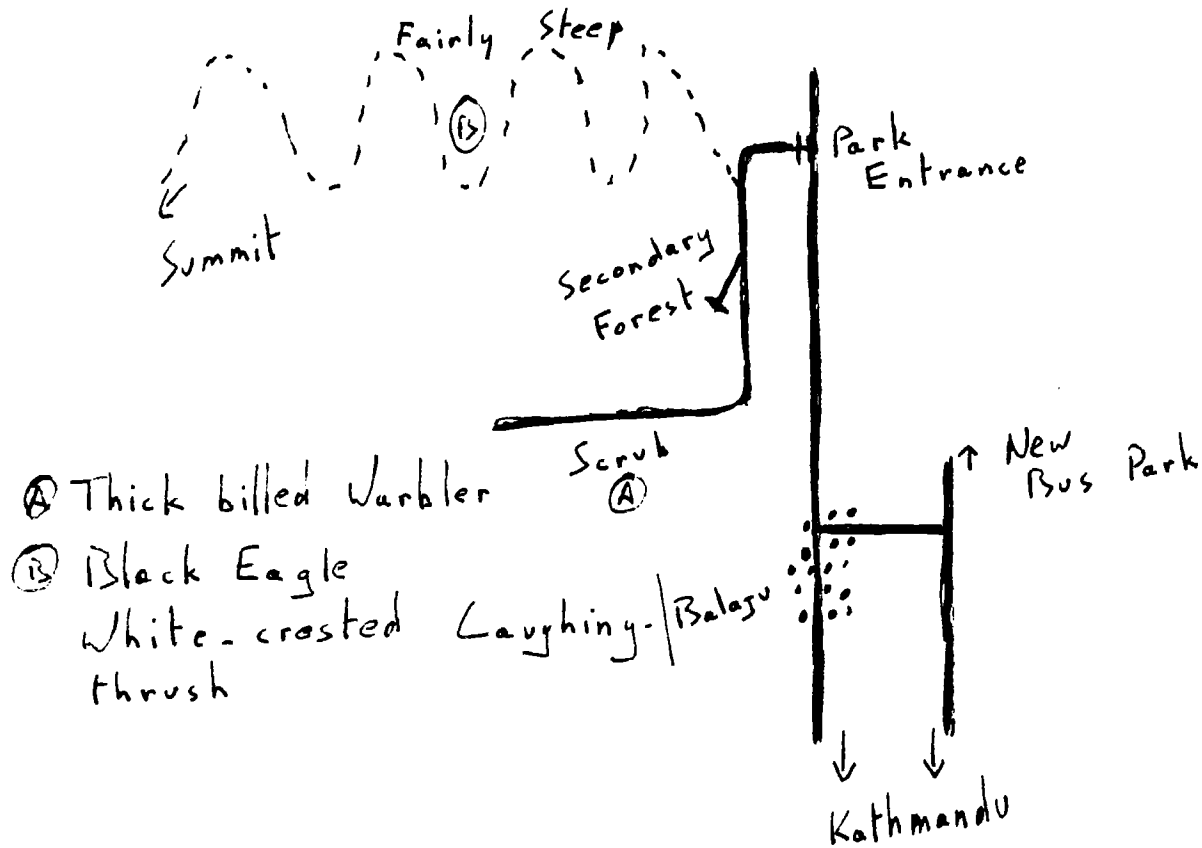 Fairly Steep
B
Park
Entrance
Summit
Secondary
Forest
Scrub
A
↑ New
Bus Park
A Thick billed Warbler
B Black Eagle
White-crested Laughing-
thrush
Balaju
Kathmandu